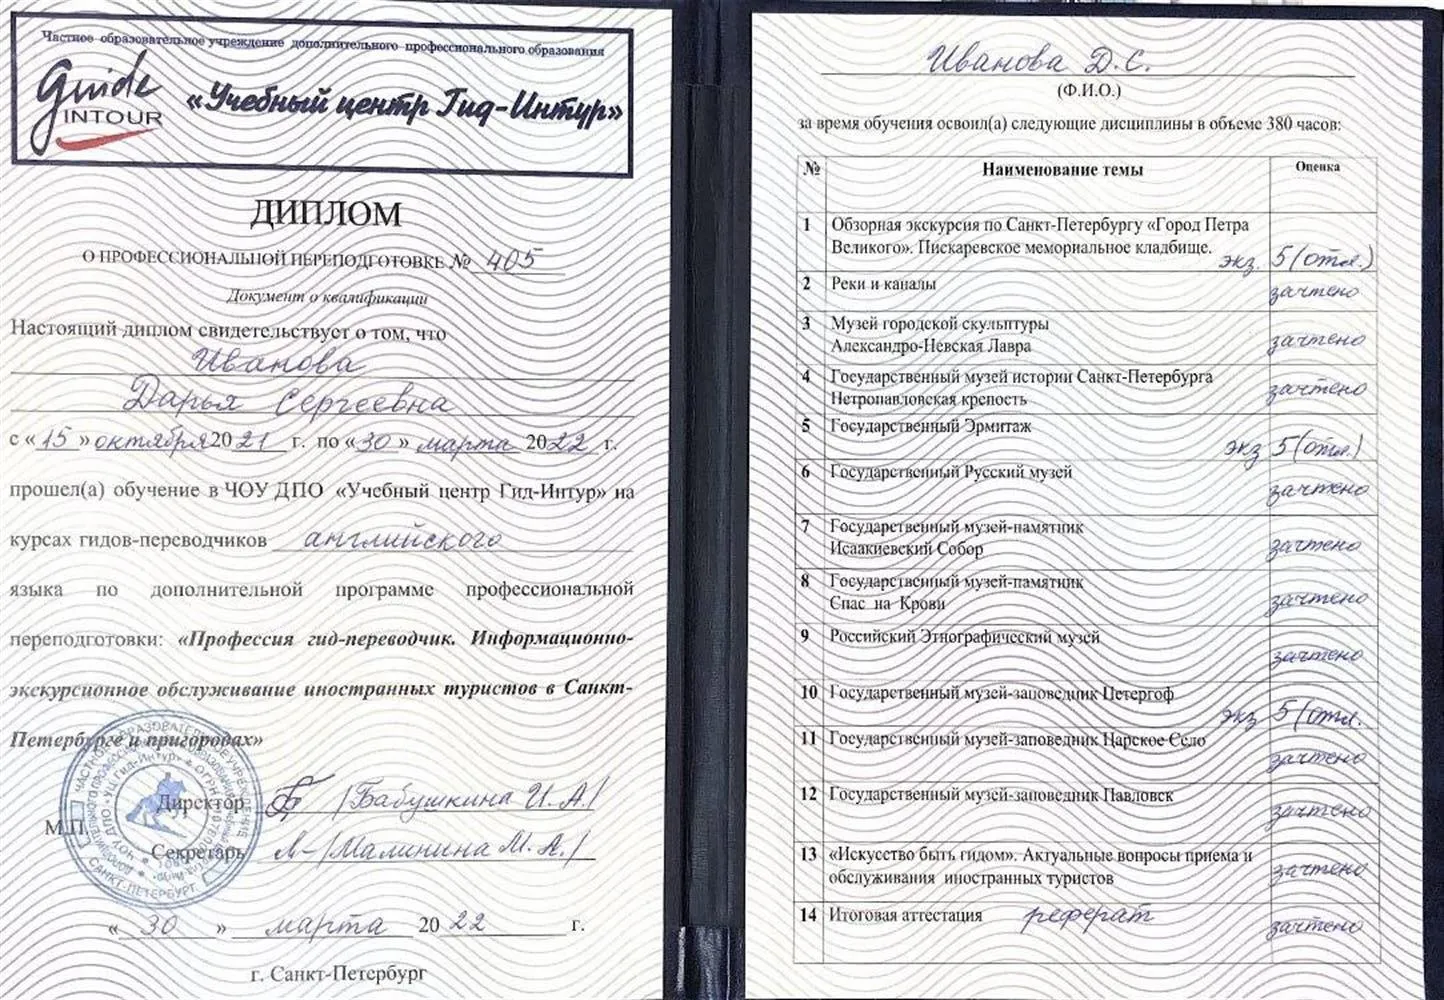 Частное образовательное учреждение дополнительного профессионального образования
guide
INTOUR
«Учебный центр Гид-Интур»
ДИПЛОМ
О ПРОФЕССИОНАЛЬНОЙ ПЕРЕПОДГОТОВКЕ № 405
Документ о квалификации
Настоящий диплом свидетельствует о том, что
Иванова
Дарья Сергеевна
с «15» октября 2021 г. по «30» марта 2022 г.
прошел(а) обучение в ЧОУ ДПО «Учебный центр Гид-Интур» на
курсах гидов-переводчиков английского
языка по дополнительной программе профессиональной
переподготовки: «Профессия гид-переводчик. Информационно-
экскурсионное обслуживание иностранных туристов в Санкт-
Петербурге и пригородах»
Директор /Бабушкина И.А./
М.П.
Секретарь /Малинина М.А./
«30» марта 2022 г.
г. Санкт-Петербург
Иванова Д.С.
(Ф.И.О.)
за время обучения освоил(а) следующие дисциплины в объеме 380 часов:
№ Наименование темы Оценка
1 Обзорная экскурсия по Санкт-Петербургу «Город Петра
Великого». Пискаревское мемориальное кладбище. экз. 5(отл.)
2 Реки и каналы зачтено
3 Музей городской скульптуры
Александро-Невская Лавра зачтено
4 Государственный музей истории Санкт-Петербурга
Петропавловская крепость зачтено
5 Государственный Эрмитаж экз 5(отл.)
6 Государственный Русский музей зачтено
7 Государственный музей-памятник
Исаакиевский Собор зачтено
8 Государственный музей-памятник
Спас на Крови зачтено
9 Российский Этнографический музей зачтено
10 Государственный музей-заповедник Петергоф экз 5(отл.
11 Государственный музей-заповедник Царское Село зачтено
12 Государственный музей-заповедник Павловск зачтено
13 «Искусство быть гидом». Актуальные вопросы приема и
обслуживания иностранных туристов зачтено
14 Итоговая аттестация реферат зачтено